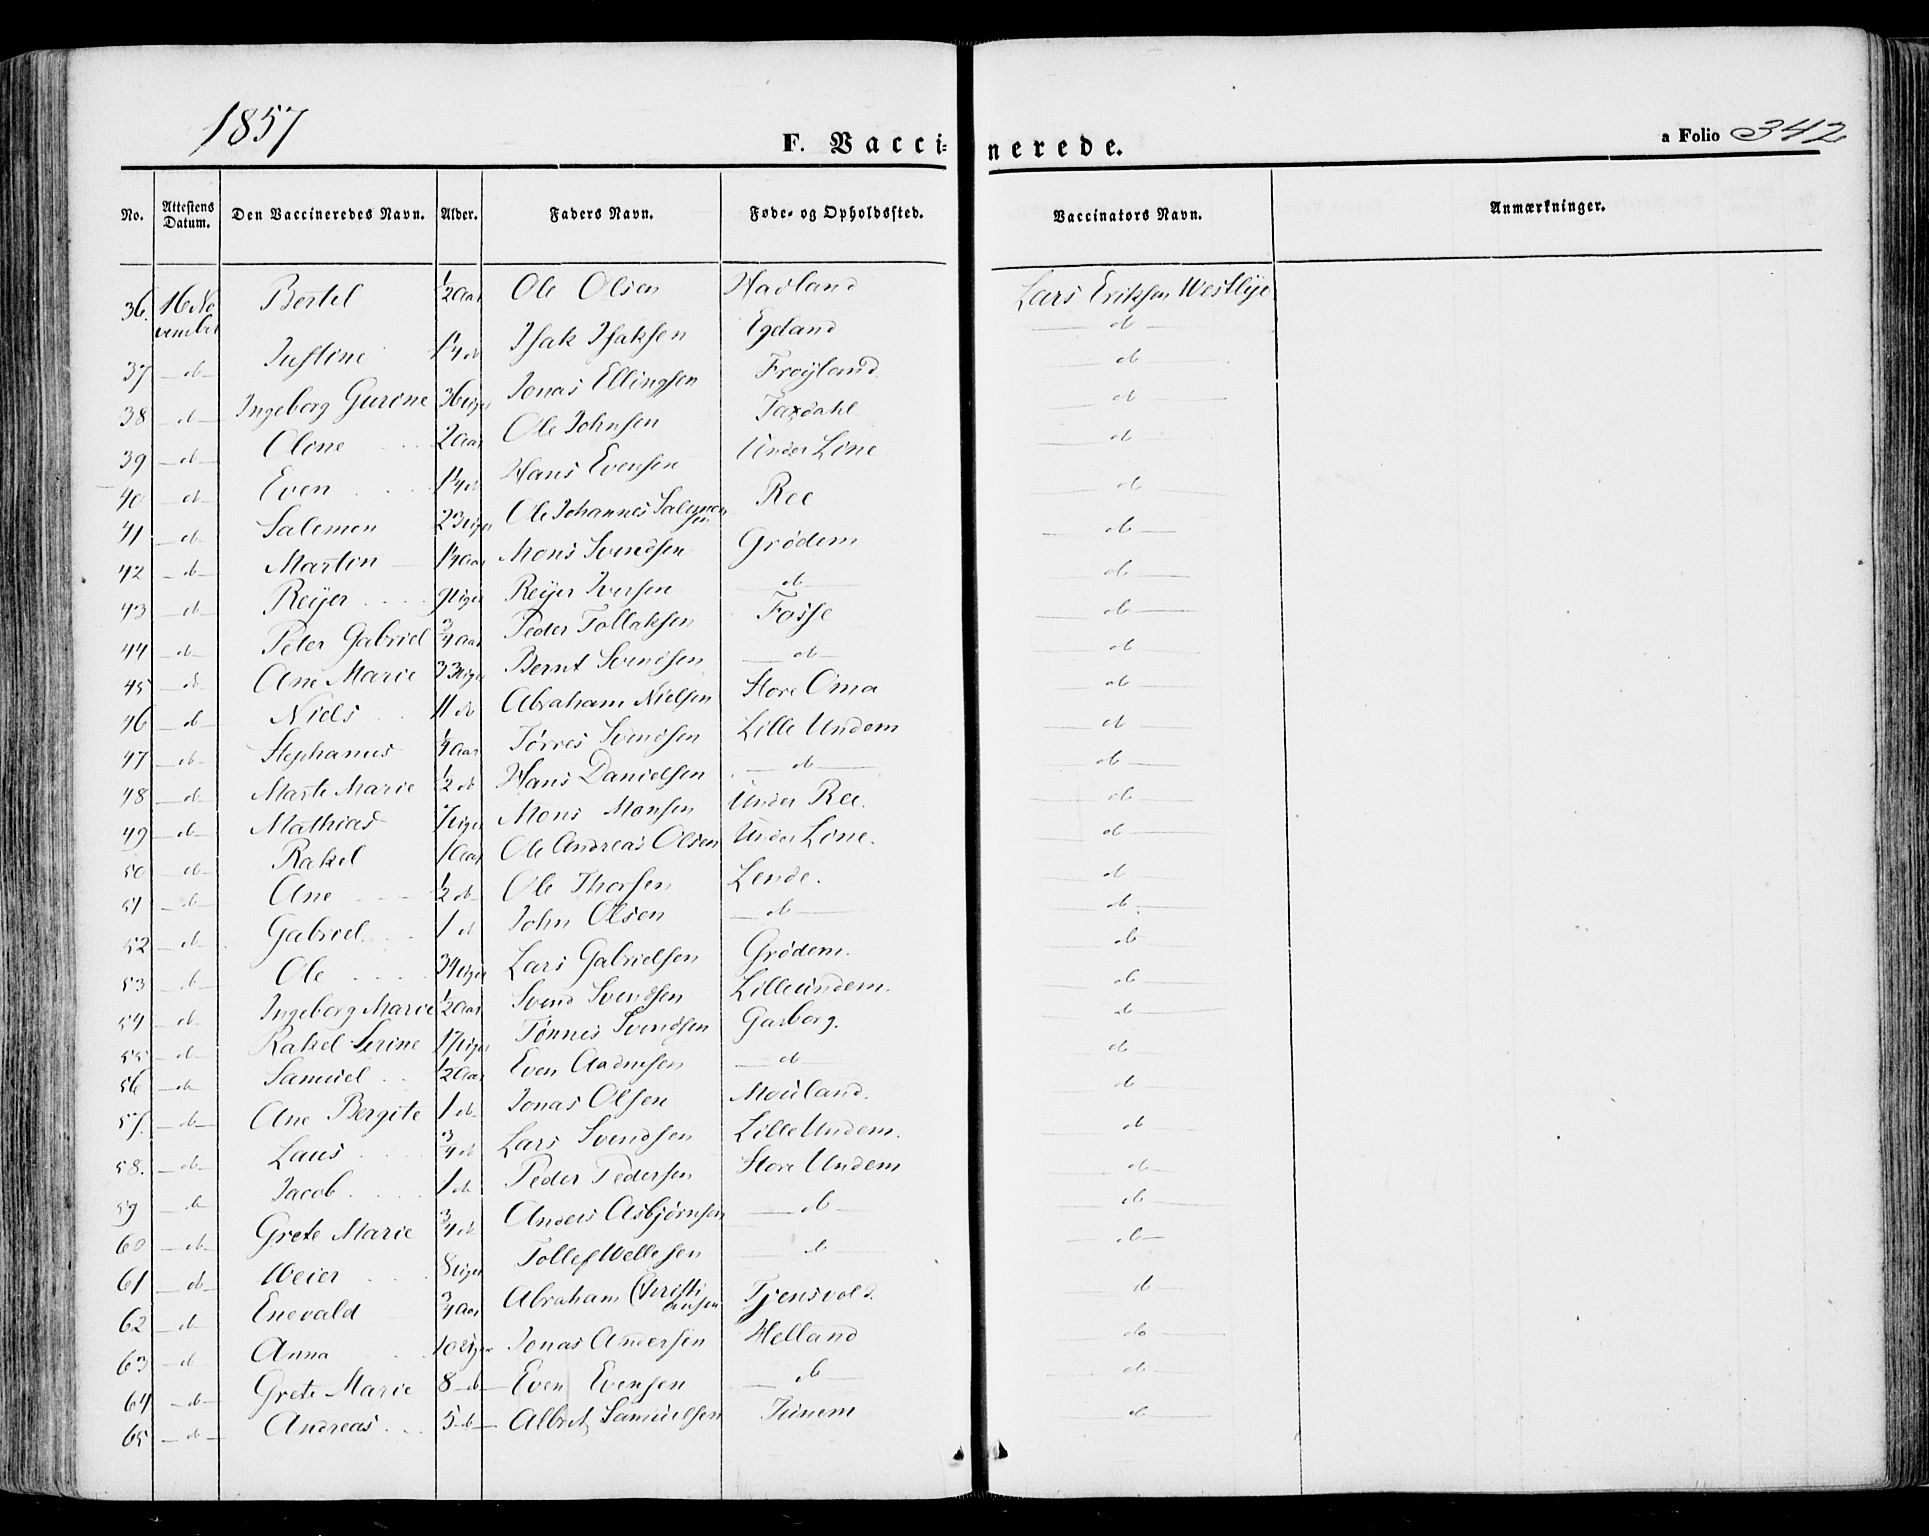 1857
F. Vaccinerede. a Folio 342
No. Attestens Datum. Den Vaccineredes Navn. Alder. Faders Navn. Føde- og Opholdssted. Vaccinators Navn. Anmærkninger.
36. 16 November Bertel 1/2 Aar Ole Olsen Hadland Lars Eriksen Westlye
37 -d- Justine 1 1/4 d Isak Isaksen Egeland -d-
38 -d- Ingeborg Gurine 36 Uger Jonas Ellingsen Frøyland -d-
39 -d- Oline 2 Aar Ole Johnsen Taxdahl -d-
40 -d- Even 1 1/4 d Hans Evensen Under Line -d-
41 -d- Salemon 23 Uger Ole Johannes Salemonsen Ree -d-
42 -d- Martin 1 1/4 Aar Mons Svendsen Grødem -d-
43 -d- Reijer 9 Uger Reijer Iversen -d- -d-
44 -d- Peter Gabriel 3/4 Aar Peder Tollaksen Fosse -d-
45 -d- Ane Marie 33 Uger Bernt Svendsen -d- -d-
46 -d- Niels 11 d Abraham Nielsen Store Oma -d-
47 -d- Stephanus 1/4 Aar Tørres Svendsen Lille Undem -d-
48 -d- Marte Marie 1/2 d Hans Danielsen -d- -d-
49 -d- Mathias 7 Uger Mons Monsen Under Ree. -d-
50 -d- Rakel 1 Aar Ole Andreas Olsen Under Line. -d-
51 -d- Ane 1/2 d Ole Thorsen Lende. -d-
52 -d- Gabriel 1 d John Olsen -d- -d-
53 -d- Ole 34 Uger Lars Gabrielsen Grødem. -d-
54 -d- Ingeborg Marie 1/2 Aar Svend Svendsen Lilleundem. -d-
55 -d- Rakel Serine 17 Uger Tønnes Svendsen Garborg. -d-
56 -d- Samuel 1/2 Aar Even Aadnesen -d- -d-
57. -d- Ane Bergite 1 d Jonas Olsen Mouland. -d-
58. -d- Laus 3/4 d Lars Svendsen Lille Undem. -d-
59 -d- Jacob 1 d Peder Pedersen Store Undem -d-
60 -d- Grete Marie 3/4 d Anders Asbjørnsen -d- -d-
61 -d- Weier 8 Uger Tollef Wellesen -d- -d-
62 -d- Enevald 3/4 Aar Abraham Christiansen Tjensvold. -d-
63 -d- Anna 10 Uger Jonas Andersen Helland -d-
64 -d- Grete Marie 8 -d- Even Evensen -d- -d-
65 -d- Andreas 5 -d- Albret Samuelsen Tunem -d-